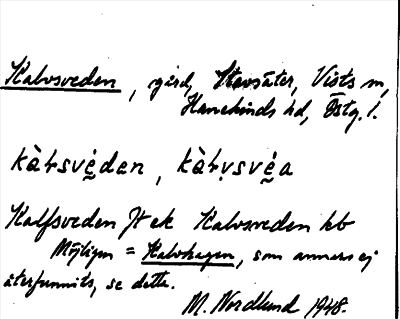 Kalvsveden, gård, Stavsäter, Vists sn,
Hanekinds hd, Östg. l.
kàɫsvé̱dən, kàɫvsvé̱a
Kalfsveden Jt ek Kalvsveden hb
Möjligen = Kalvhagen, som annars ej
återfunnits, se detta.
M. Nordlund 1948.